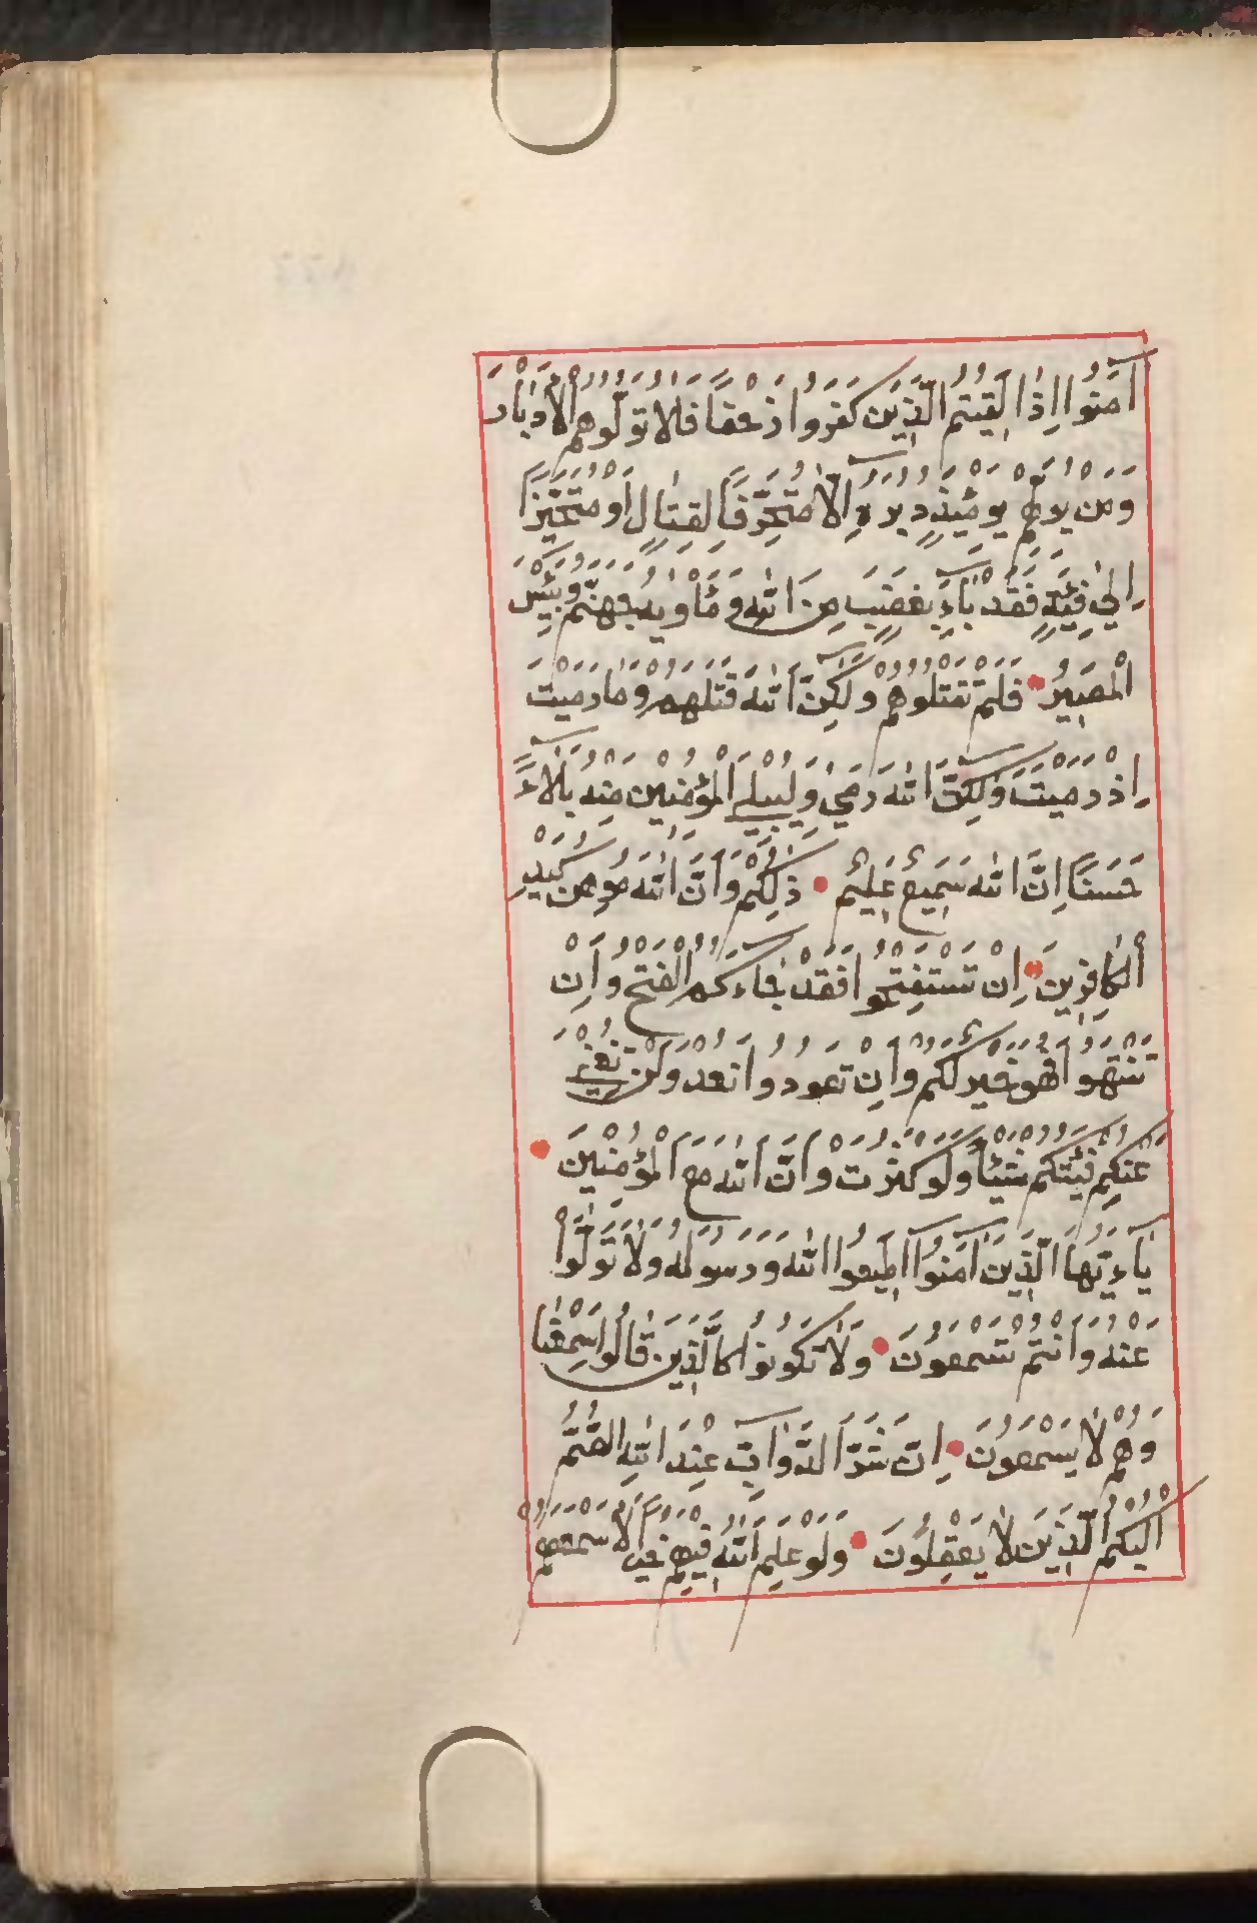 اٰمَنُوا اِذَا لَقِيْتُمُ الَّذِيْنَ كَفَرُوا زَحْفًا فَلَا تُوَلُّوهُمُ الْاَدْبَارَ
وَمَنْ يُوَلِّهِمْ يَوْمَئِذٍ دُبُرَهُ اِلَّا مُتَحَرِّفًا لِقِتَالٍ اَوْ مُتَحَيِّزًا
اِلٰي فِئَةٍ فَقَدْ بَاءَ بِغَضَبٍ مِنَ اللّٰهِ وَمَأْوٰيهُ جَهَنَّمُ وَبِئْسَ
الْمَصِيْرُ فَلَمْ تَقْتُلُوهُمْ وَلٰكِنَّ اللّٰهَ قَتَلَهُمْ وَمَا رَمَيْتَ
اِذْ رَمَيْتَ وَلٰكِنَّ اللّٰهَ رَمٰي وَلِيُبْلِيَ الْمُؤْمِنِيْنَ مِنْهُ بَلَاءً
حَسَنًا اِنَّ اللّٰهَ سَمِيْعٌ عَلِيْمٌ ذٰلِكُمْ وَاَنَّ اللّٰهَ مُوهِنُ كَيْدِ
الْكَافِرِيْنَ اِنْ تَسْتَفْتِحُوا فَقَدْ جَاءَكُمُ الْفَتْحُ وَاِنْ
تَنْتَهُوا فَهُوَ خَيْرٌ لَكُمْ وَاِنْ تَعُودُوا نَعُدْ وَلَنْ تُغْنِيَ
عَنْكُمْ فِئَتُكُمْ شَيْئًا وَلَوْ كَثُرَتْ وَاَنَّ اللّٰهَ مَعَ الْمُؤْمِنِيْنَ
يَاءَيُّهَا الَّذِيْنَ اٰمَنُوا اَطِيعُوا اللّٰهَ وَرَسُولَهُ وَلَا تَوَلَّوْا
عَنْهُ وَاَنْتُمْ تَسْمَعُونَ وَلَا تَكُونُوا كَالَّذِيْنَ قَالُوا سَمِعْنَا
وَهُمْ لَا يَسْمَعُونَ اِنَّ شَرَّ الدَّوَابِّ عِنْدَ اللّٰهِ الصُّمُّ
الْبُكْمُ الَّذِيْنَ لَا يَعْقِلُونَ وَلَوْ عَلِمَ اللّٰهُ فِيْهِمْ خَيْرًا لَاَسْمَعَهُمْ